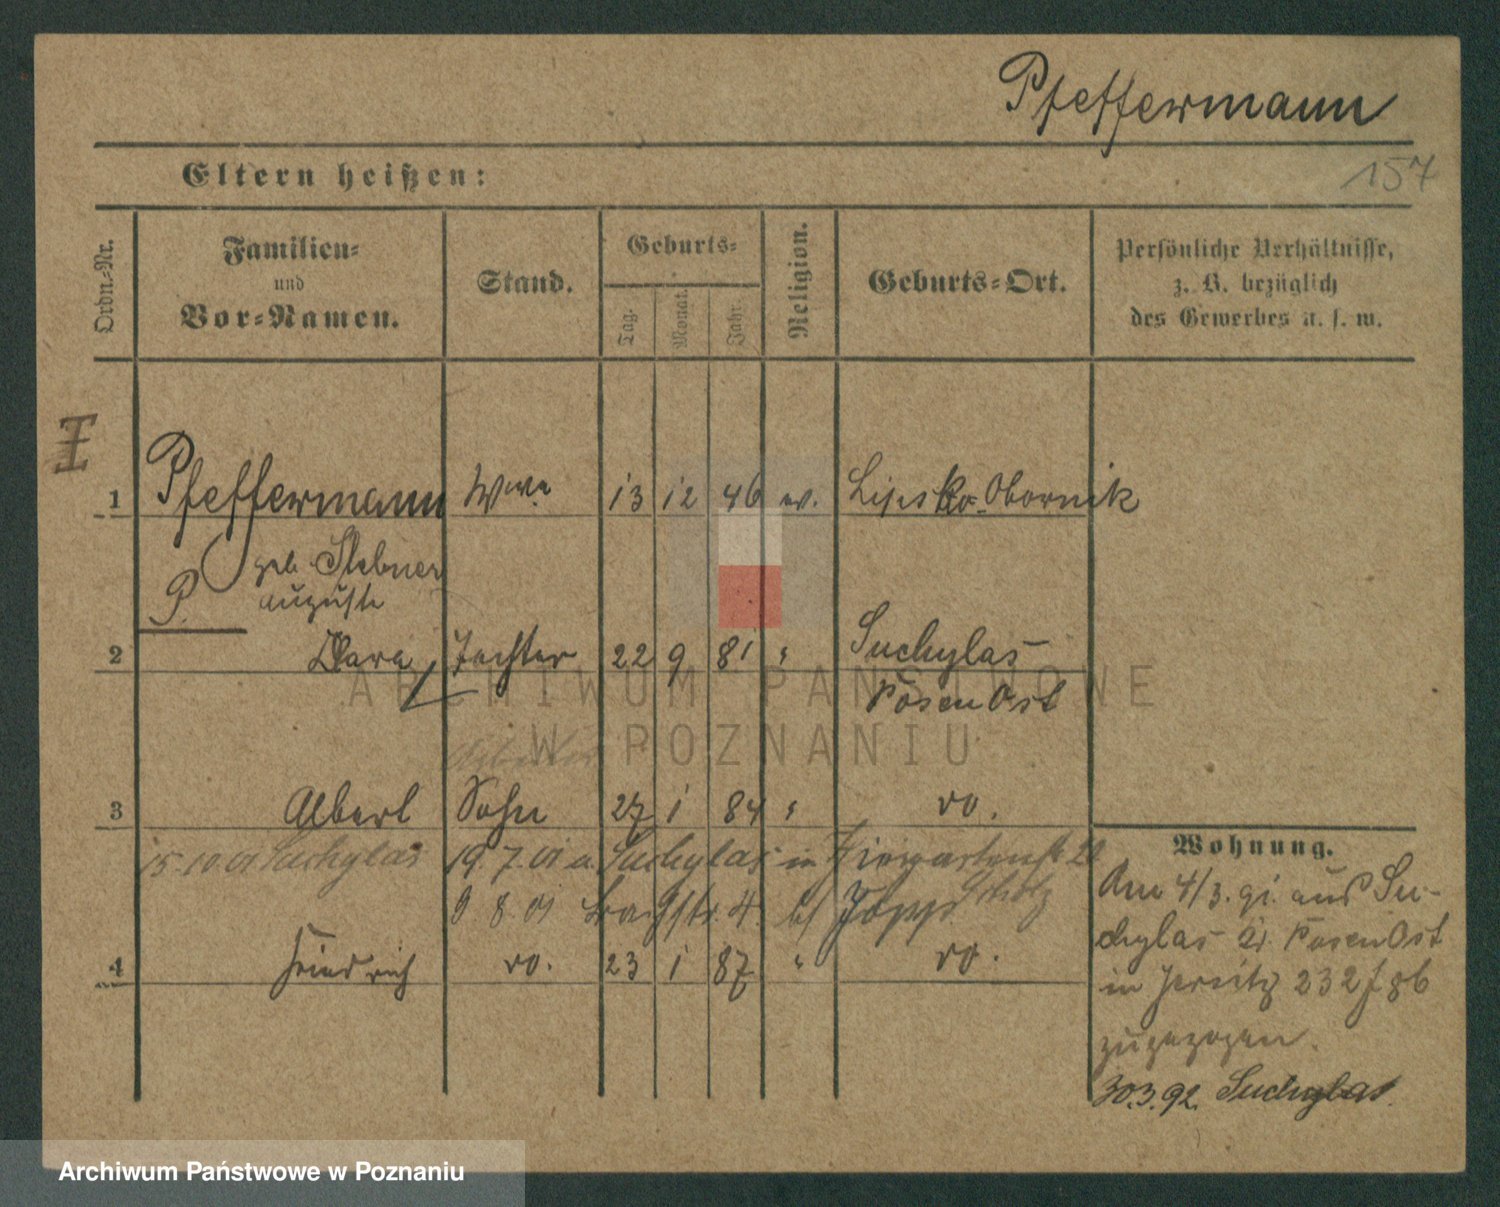 Pfeffermann
157
Eltern heißen:
Ordn.-Nr.
Familien-
und
Vor-Namen.
Stand.
Geburts-
Tag.
Monat.
Jahr.
Religion.
Geburts-Ort.
Persönliche Verhältnisse,
z. B. bezüglich
des Gewerbes u. s. w.
I
1 Pfeffermann Wwe 13 12 46 ev. Lipa Kr. Obornik
geb. Stebner
P. Auguste
2 Klara Tochter 22 9 81 " Suchylas
Posen Ost
Arbeiter
3 Albert Sohn 27 1 84 " do.
15.10.01 Suchylas 19.7.01 a. Suchylas in Tiergartenstr. 20
9 8. 01 str. 4. bei Jopp
4 Friedrich do. 23 1 87 " do.
Wohnung.
Am 4/3. 91. aus Su-
chylas Kr. Posen Ost
in Jersitz 232 f 86
zugezogen.
30.3.92. Suchylas.
ARCHIWUM PAŃSTWOWE
W POZNANIU
Archiwum Państwowe w Poznaniu